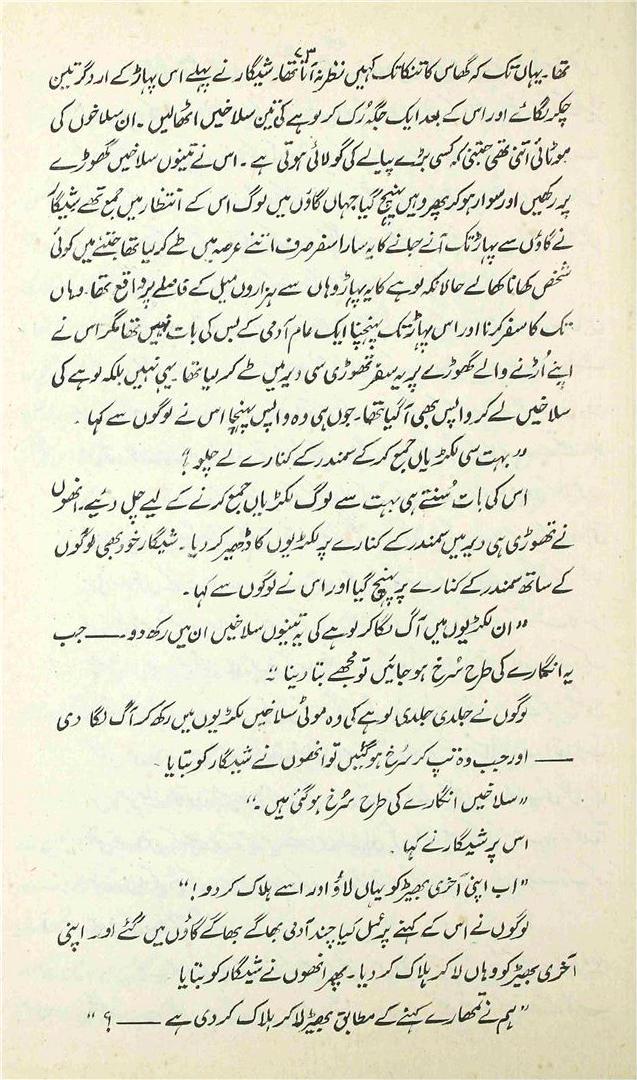 ۷۳
تھا۔ یہاں تک کہ گھاس کا تنکا تک کہیں نظر نہ آتا تھا۔ شیگار نے پہلے اس پہاڑ کے ارد گرد تین
چکر لگائے اور اس کے بعد ایک جگہ رُک کر لوہے کی تین سلاخیں اٹھالیں۔ ان سلاخوں کی
موٹائی اتنی تھی جتنی کہ کسی بڑے پیالے کی گولائی ہوتی ہے۔ اس نے تینوں سلاخیں گھوڑے
پر رکھیں اور سوار ہو کر پھر وہیں پہنچ گیا جہاں گاؤں میں لوگ اس کے انتظار میں جمع تھے شیگار
نے گاؤں سے پہاڑ تک آنے جانے کا یہ سارا سفر صرف اتنے عرصہ میں طے کر لیا تھا جتنے میں کوئی
شخص کھانا کھالے حالانکہ لوہے کا یہ پہاڑ وہاں سے ہزاروں میل کے فاصلے پر واقع تھا۔ وہاں
تک کا سفر کرنا اور اس پہاڑ تک پہنچنا ایک عام آدمی کے بس کی بات نہیں تھا مگر اس نے
اپنے اُڑنے والے گھوڑے پر یہ سفر تھوڑی سی دیر میں طے کر لیا تھا۔ یہی نہیں بلکہ لوہے کی
سلاخیں لے کر واپس بھی آگیا تھا۔ جوں ہی وہ واپس پہنچا اس نے لوگوں سے کہا۔
"بہت سی لکڑیاں جمع کر کے سمندر کے کنارے لے چلو!"
اس کی بات سُنتے ہی بہت سے لوگ لکڑیاں جمع کرنے کے لیے چل دئیے۔ انھوں
نے تھوڑی ہی دیر میں سمندر کے کنارے پر لکڑیوں کا ڈھیر کر دیا۔ شیگار خود بھی لوگوں
کے ساتھ سمندر کے کنارے پر پہنچ گیا اور اس نے لوگوں سے کہا۔
"ان لکڑیوں میں آگ لگا کر لوہے کی یہ تینوں سلاخیں ان میں رکھ دو۔ —— جب
یہ انگارے کی طرح سُرخ ہو جائیں تو مجھے بتا دینا"
لوگوں نے جلدی جلدی لوہے کی وہ موٹی سلاخیں لکڑیوں میں رکھ کر آگ لگا دی
—— اور جب وہ تپ کر سُرخ ہو گئیں تو انھوں نے شیگار کو بتایا۔
"سلاخیں انگارے کی طرح سُرخ ہو گئی ہیں۔"
اس پر شیگار نے کہا
"اب اپنی آخری بھیڑ کو یہاں لاؤ اور اسے ہلاک کر دو!"
لوگوں نے اس کے کہنے پر عمل کیا چند آدمی بھاگے بھاگے گاؤں میں گئے اور اپنی
آخری بھیڑ کو وہاں لا کر ہلاک کر دیا۔ پھر انھوں نے شیگار کو بتایا
"ہم نے تمھارے کہنے کے مطابق بھیڑ لا کر ہلاک کر دی ہے —— ؟"